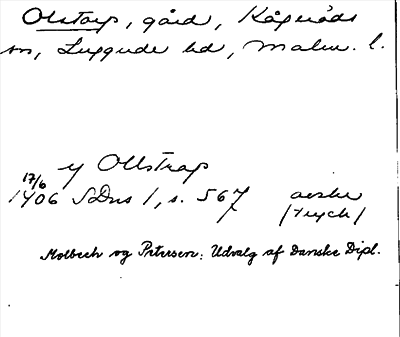 Olstorp, gård, Kågeröds
sn, Luggude hd, Malm. l.
y Ollstrap
17/6
1406 SDns 1, s. 567 avskr
(tryck)
Molbech og Petersen: Udvalg af Danske Dipl.